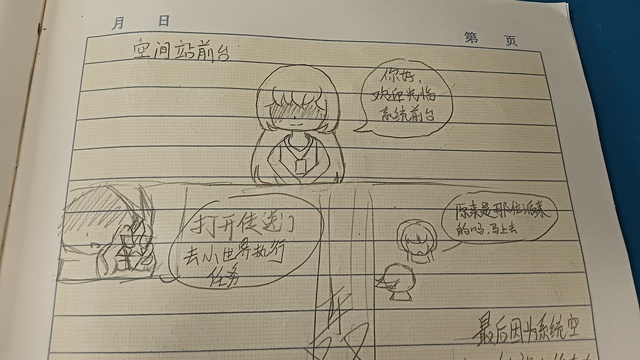 月 日
第 页
空间站前台
你好,
欢迎光临
系统前台
打开传送门
去小世界执行
任务
原来是那位派来
的吗,马上去
最后因为系统空